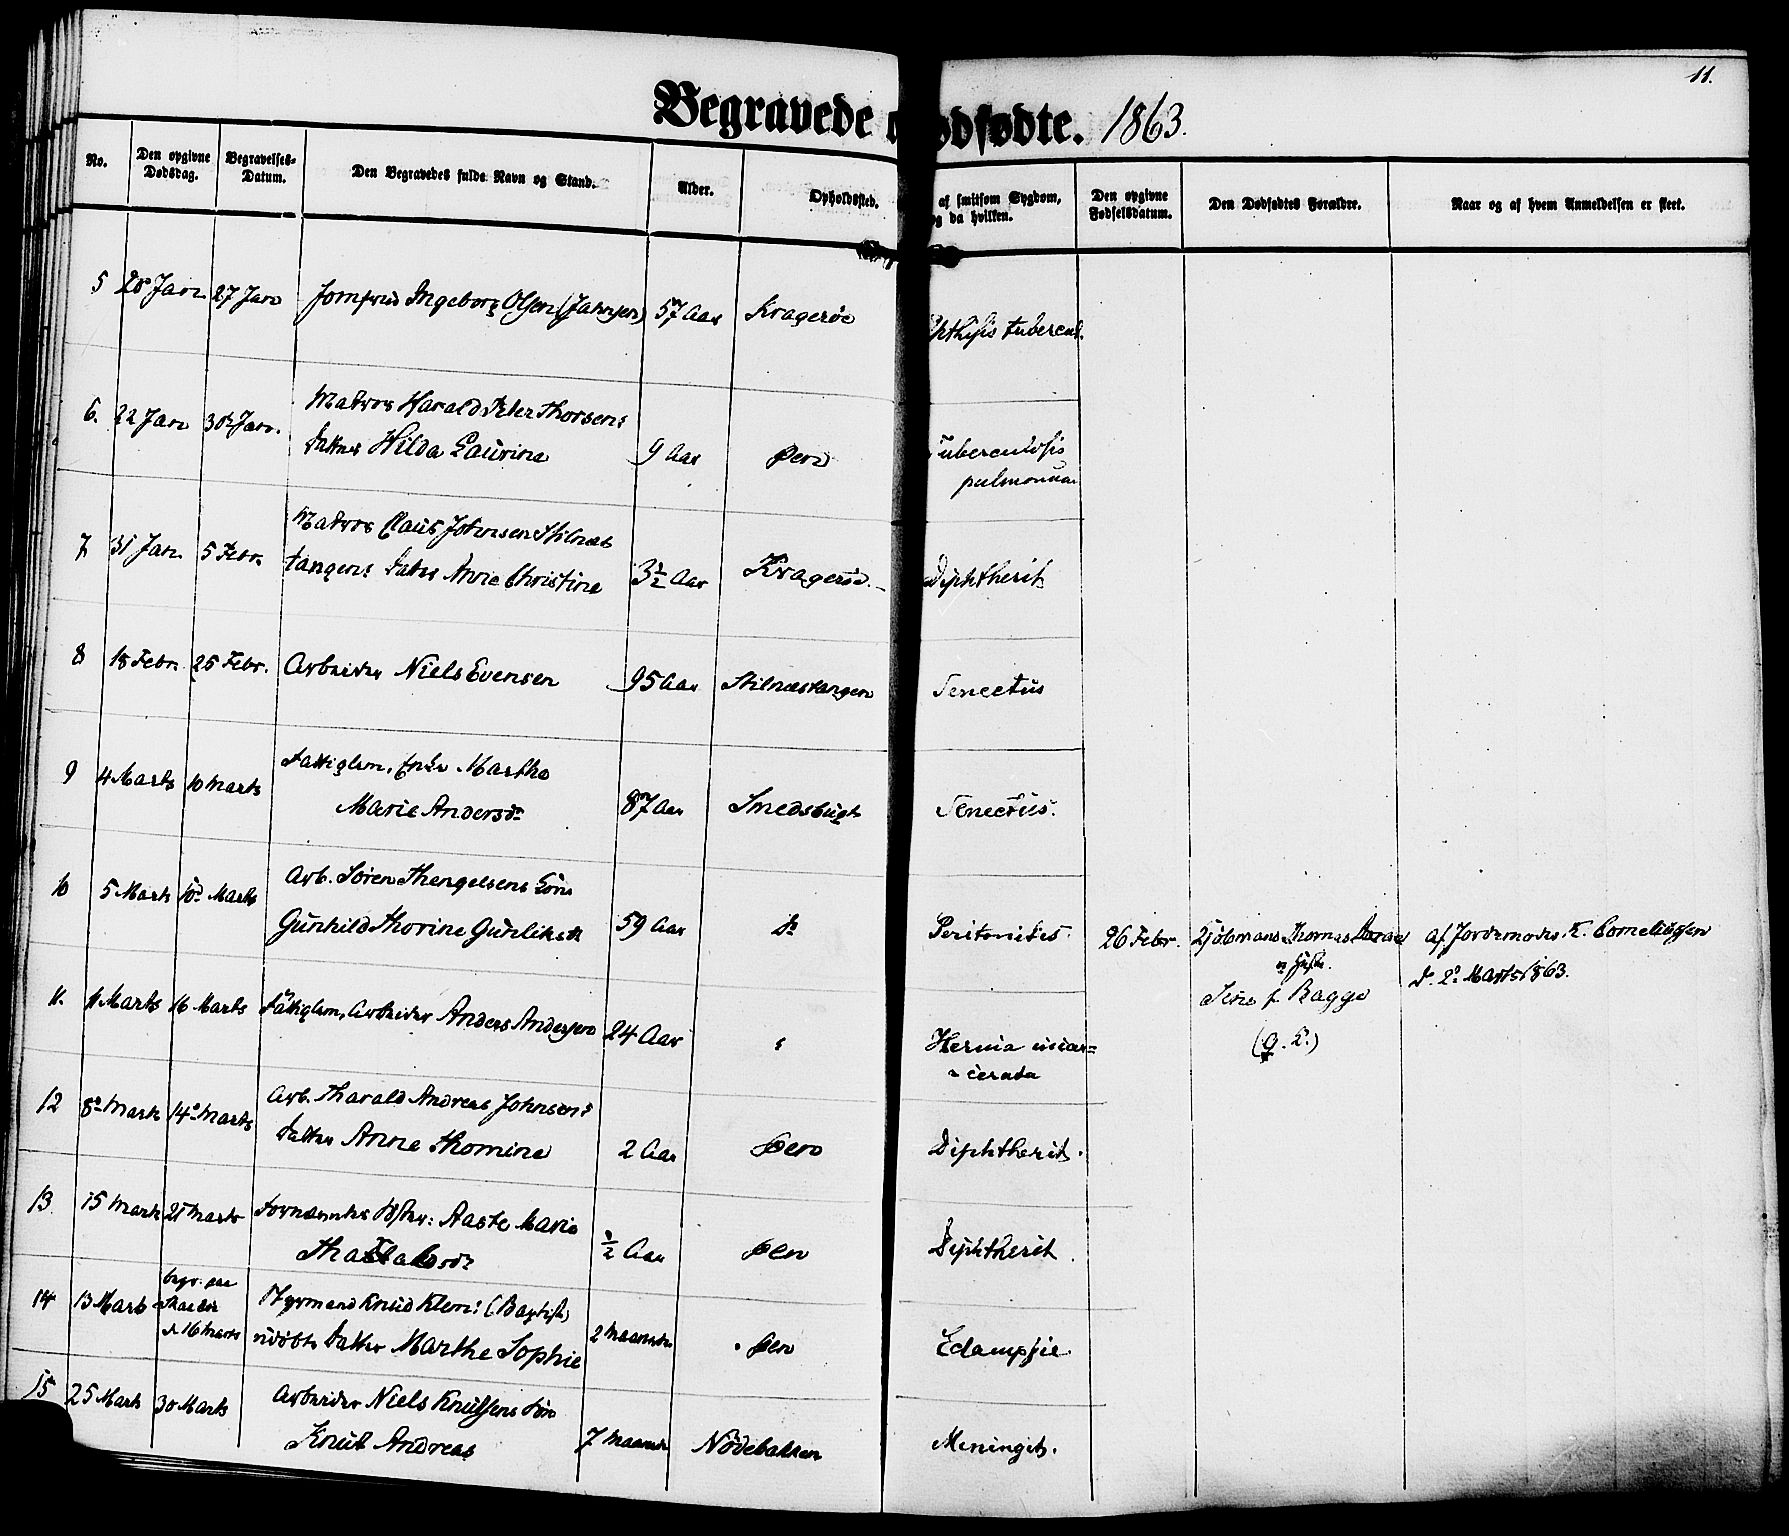 11.
Begravede og Dødfødte. 1863.
No. Den opgivne Dødsdag. Begravelses-Datum. Den Begravedes fulde Navn og Stand. Alder. Opholdssted. af smitsom Sygdom, og da hvilken. Den opgivne Fødselsdatum. Den Dødfødtes Forældre. Naar og af hvem Anmeldelsen er skeet.
5 20 Jan 27 Jan Jomfrue Ingeborg Olsen (Jahnsen) 57 Aar Kragerøe Phthisis tubercul.
6. 22 Jan 30 Jan. Matros Harald Peter Thorsens
Datter Hilda Laurine 9 Aar Øen Tuberculosis
pulmonum
7 31 Jan 5 Febr. Matros Claus Johnsen Stilnæs
tangens Datter Anne Christine 3½ Aar Kragerøe. Diphtherit
8 18 Febr. 25 Febr. Arbeider Niels Evensen 95 Aar Stilnæstangen Senectus
9 4 Marts 10 Marts Fattiglem, Enke Marthe
Marie Andersdr 87 Aar Smedsbugt Senectus.
10 5 Marts 10 Marts Arb. Søren Thengelsens
Gunhild Thorine Gunliksdr 59 Aar do Peritonitis. 26 Febr. Sjømand Thomas
og Hustr.
f. Bagge
Af Jordemoder E. Corneliussen
d. 2 Marts 1863.
11. 11 Marts 16 Marts Fattiglem, Arbeider Anders Andersen 24 Aar Hernia incar=
cerata
12 8 Marts 14 Marts Arb. Tharald Andreas Johnsens
Datter Anne Thomine 2 Aar Øen Diphtherit.
13. 15 Marts 21 Marts Aaste Marie
½ Aar Øen Diphtherit.
14 13 Marts begr. paa
Skaadøe
d 16 Marts Styrmand Knud Klem: (Baptist)
udøbte Datter Marthe Sophie 2 Maaneder Øen Eclampsie
15 25 Marts 30 Marts Arbeider Niels Knutsens Søn
Knut Andreas 7 Maaneder Nødebakken Meningit.